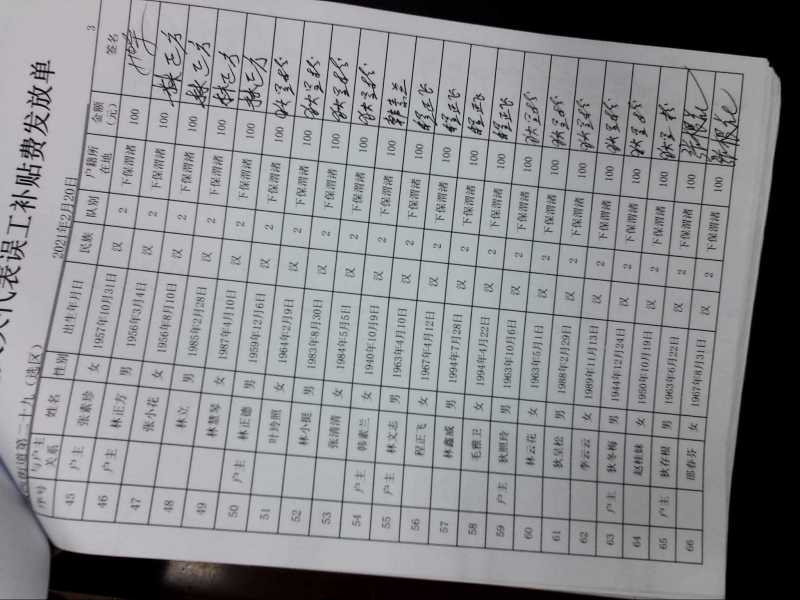 代表误工补贴费发放单
街道第二十九（选区） 2021年2月20日 3
序号 与户主关系 姓名 性别 出生年月日 民族 队别 户籍所在地 金额（元） 签名
45 户主 张素珍 女 1957年10月31日 汉 2 下保渭渚 100
46 户主 林正方 男 1956年3月4日 汉 2 下保渭渚 100 林正方
47 张小花 女 1956年8月10日 汉 2 下保渭渚 100 林正方
48 林立 男 1985年2月28日 汉 2 下保渭渚 100 林正方
49 林慧琴 女 1987年4月10日 汉 2 下保渭渚 100 林正方
50 户主 林正德 男 1959年12月6日 汉 2 下保渭渚 100
51 叶玲照 女 1964年2月9日 汉 2 下保渭渚 100
52 林小挺 男 1983年8月30日 汉 2 下保渭渚 100
53 张清清 女 1984年5月5日 汉 2 下保渭渚 100
54 户主 韩素兰 女 1940年10月9日 汉 2 下保渭渚 100 韩素兰
55 户主 林文志 男 1963年4月10日 汉 2 下保渭渚 100 程正飞
56 程正飞 女 1967年4月12日 汉 2 下保渭渚 100 程正飞
57 林鑫威 男 1994年7月28日 汉 2 下保渭渚 100 程正飞
58 毛雅卫 女 1994年4月22日 汉 2 下保渭渚 100 程正飞
59 户主 狄照玲 男 1963年10月6日 汉 2 下保渭渚 100
60 林云花 女 1963年5月1日 汉 2 下保渭渚 100
61 狄呈松 男 1988年2月29日 汉 2 下保渭渚 100
62 李云云 女 1989年11月13日 汉 2 下保渭渚 100
63 户主 狄冬梅 男 1944年12月24日 汉 2 下保渭渚 100
64 赵桂妹 女 1950年10月19日 汉 2 下保渭渚 100
65 户主 狄存根 男 1963年6月22日 汉 2 下保渭渚 100
66 邵春芬 女 1967年8月31日 汉 2 下保渭渚 100